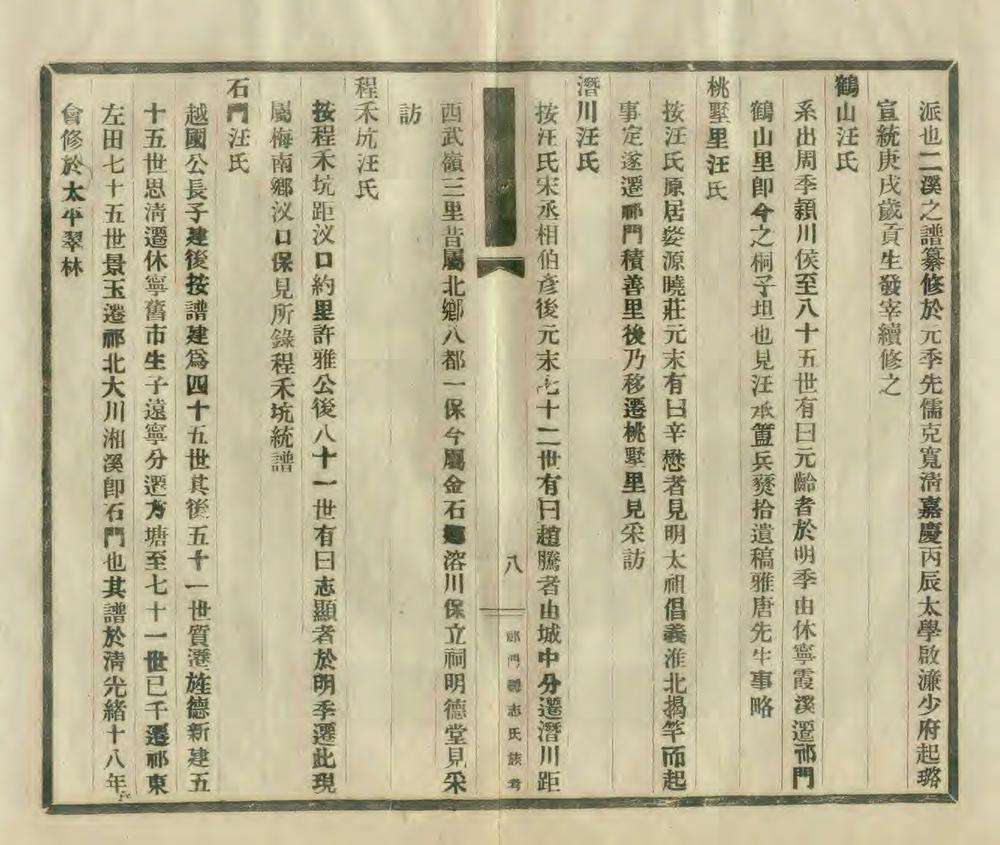 派也二溪之譜纂修於元季先儒克寬清嘉慶丙辰太學啟濂少府起璐
宣統庚戌歲貢生發宰續修之
鶴山汪氏
系出周季潁川侯至八十五世有曰元齡者於明季由休寧霞溪遷祁門
鶴山里卽今之桐子坦也見汪承簠兵燹拾遺稿雅唐先生事略
桃墅里汪氏
按汪氏原居婺源曉莊元末有曰辛懋者見明太祖倡義淮北揭竿而起
事定遂遷祁門積善里後乃移遷桃墅里見采訪
潛川汪氏
按汪氏宋丞相伯彥後元末七十二世有曰趙騰者由城中分遷潛川距
八
祁門縣志氏族考
西武嶺三里昔屬北鄉八都一保今屬金石鄉溶川保立祠明德堂見采
訪
程禾坑汪氏
按程禾坑距汊口約里許雅公後八十一世有曰志顯者於明季遷此現
屬梅南鄉汊口保見所錄程禾坑統譜
石門汪氏
越國公長子建後按譜建爲四十五世其後五十一世質遷旌德新建五
十五世思清遷休寧舊市生子遠寧分遷方塘至七十一世已千遷祁東
左田七十五世景玉遷祁北大川湘溪卽石門也其譜於清光緒十八年
會修於太平翠林